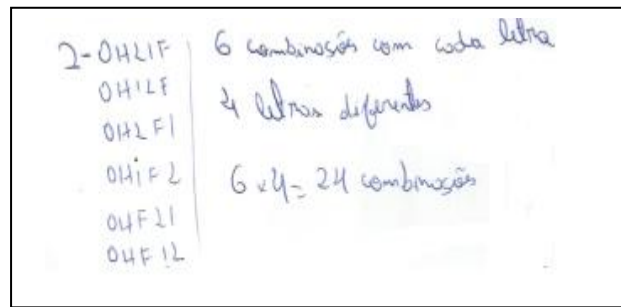 2-OHLIF
OHILF
OHLFI
OHiFL
OHFLI
OHFIL
6 combinações com cada letra
4 letras diferentes
6x4=24 combinações